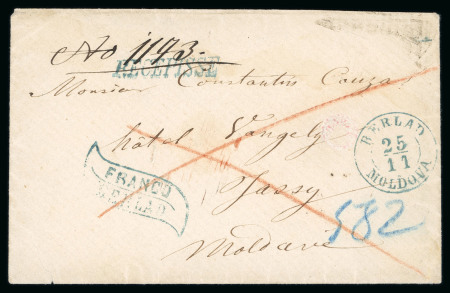 No 1143.
RECEPISSE
Monsieur Constantin Couza
hôtel Vangely
Jassy
Moldavie
FRANCO
BERLAD
BERLAD
25
11
MOLDOVA
582